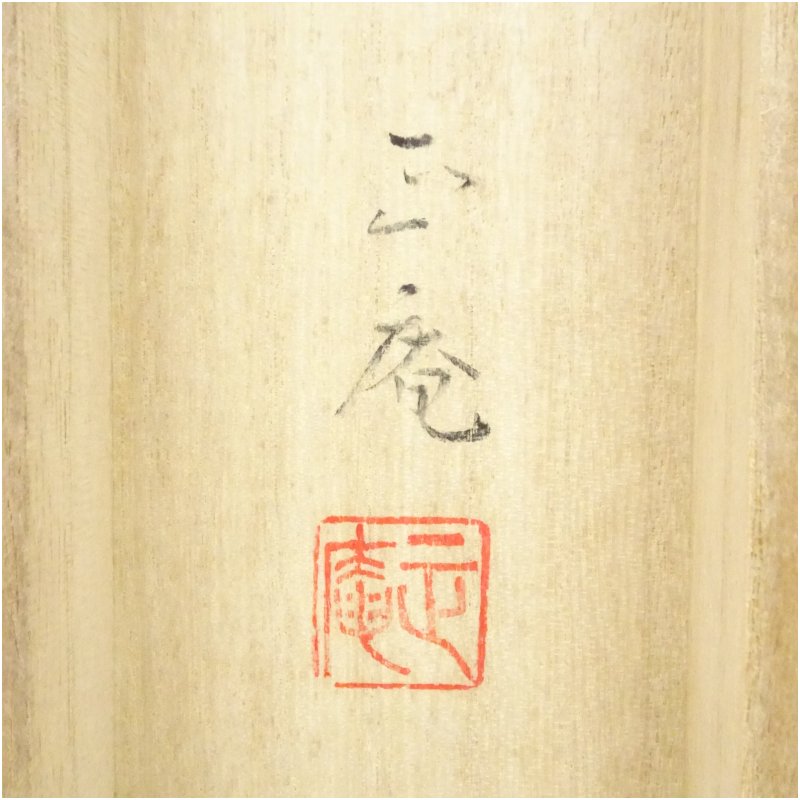 正庵
正庵